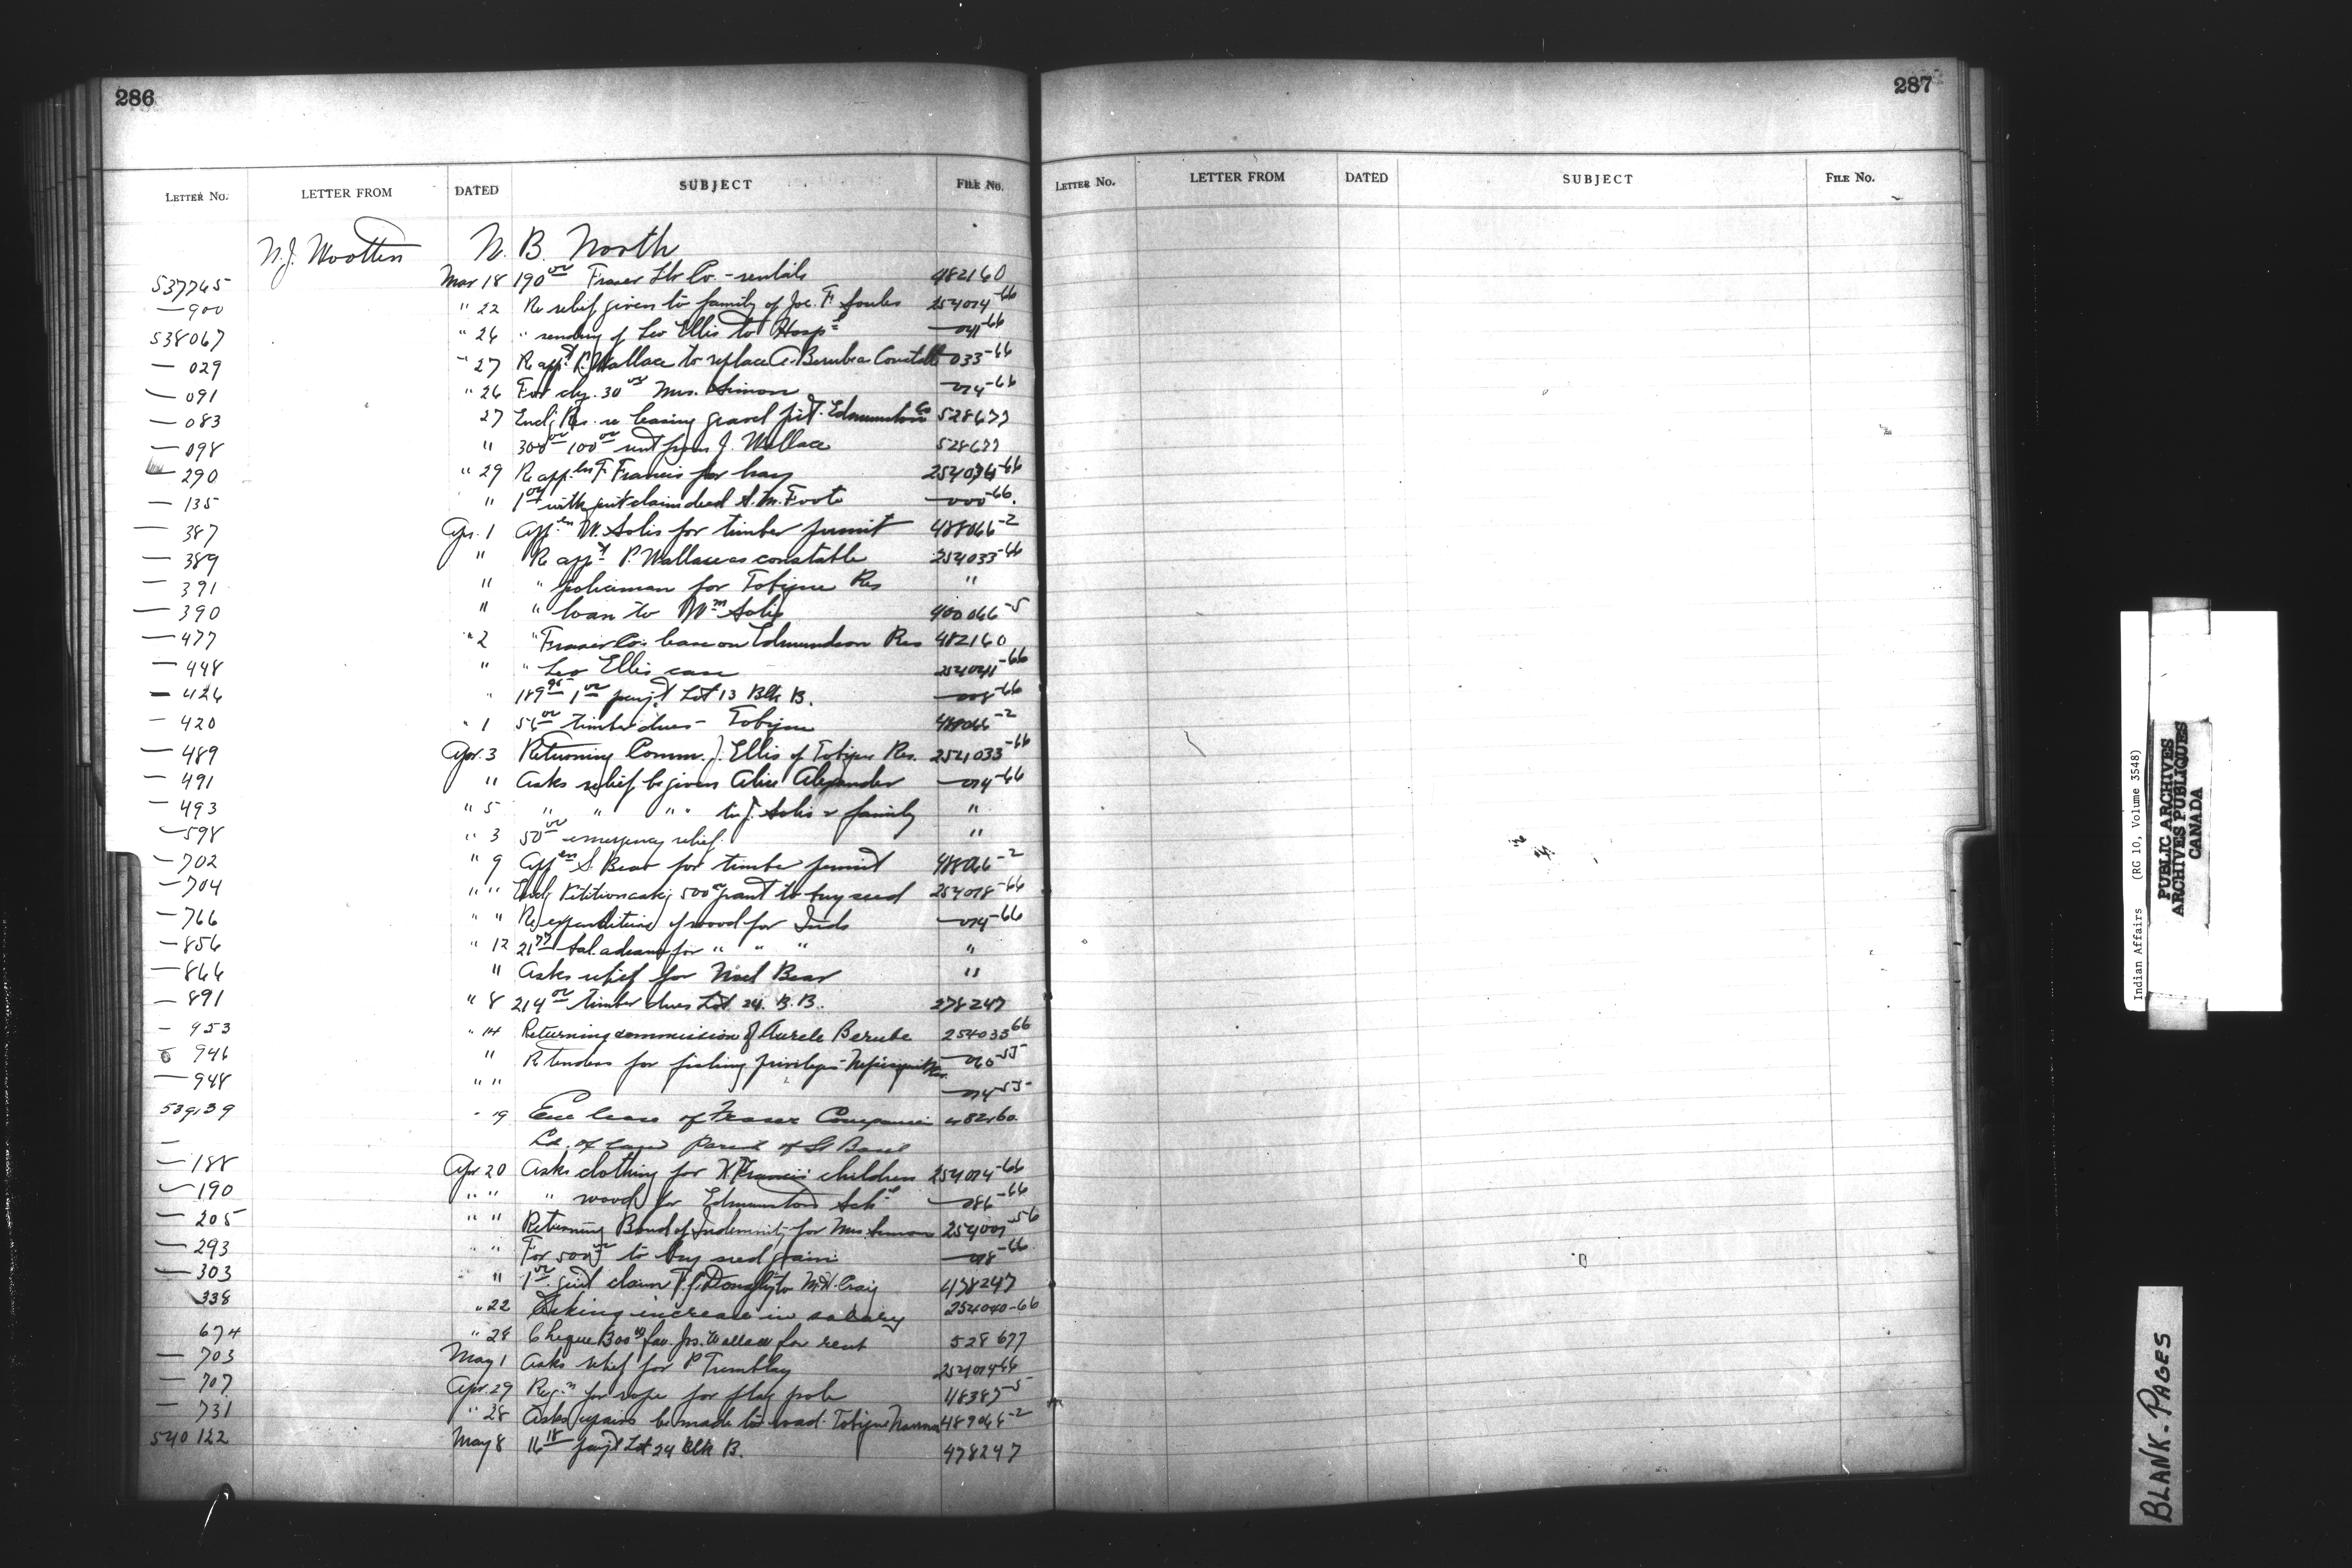 286
LETTER NO. LETTER FROM DATED SUBJECT FILE NO.
N.J. Wootten N. B. North
537765 Mar 18 190 00 Fraser Lbr Co. - rentals 482160
— 900 " 22 Re relief given to family of Joe. F. 254014-66
538067 " 26 " sending of Leo Ellis to Hosp l — 041-66
— 029 " 27 Re app t P. Wallace to replace A. Berube as Constable — 033-66
— 091 " 26 For chq. 30 00 Mrs. Simon — 014-66
— 083 27 Encl'g Res. re leasing gravel pit. Edmundston 528677
— 098 " 300 00 100 00 rent from J. Wallace 528677
— 290 " 29 Re app. F. Francis for hay -66
— 135 " 1 00 with quit claim deed S. M. Foote — 000-66.
— 387 Apr. 1 App M. Solis for timber permit 488066-2
— 389 " Re app t P. Wallace as constable 254033-66
— 391 " " policeman for Tobique Res "
— 390 " " loan to Wm Solis 400066-5
— 477 " 2 " Fraser Co. lease on Edmundston Res 482160
— 448 " " Leo Ellis case 254041-66
— 426 " 189 95 1 00 paym't Lot 13 Blk B. — 008-66
— 420 " 1 56 00 timber dues - Tobique 488066-2
— 489 Apr. 3 Returning Comm. J. Ellis of Tobique Res. 254033-66
— 491 " Asks relief be given Alice Alexander — 014-66
— 493 " 5 " " " " J. Solis & family "
— 598 " 3 50 00 emergency relief. "
— 702 " 9 App S. Bear for timber permit 488066-2
— 704 " " Encl'g Petition ask'g 500 00 grant to buy seed 254018-66
— 766 " " Re expenditure of wood for Inds — 014-66
— 856 " 12 21 77 bal. advance for " " " "
— 866 " Asks relief for Noel Bear "
— 891 " 8 214 00 timber dues Lot 24. B. B. 278247
— 953 " 14 Returning commission of Aurele Berube 254033 66
946 " Re tenders for fishing privileges — 010-55
— 948 " " — 014-55
539139 " 19 lease of Fraser Companies 482160.
Ld. of land Parish of St Basil
— 188 Apr. 20 Asks clothing for Francis' children 254014-66
— 190 " " " wood for Edmunston Sch l — 086-66
— 205 " " Returning Bond of Indemnity for Mrs Simon 254001-56
— 293 " " For 500 00 to buy seed grain — 018-66
— 303 " " 1 00 quit claim to M. H. Craig 478247
338 " 22 Asking increase in salary 254040-66
674 " 28 Cheque 300 00 fav. Jos. Wallace for rent 528677
— 703 May 1 Asks relief for P Tremblay 254014-66
— 707 Apr. 29 Reg. n for rope for flag pole 118387-5
— 731 " 28 Asks repairs be made to road. Tobique -2
540122 May 8 16 18 paym't Lot 24 Blk B. 478247
287
LETTER NO. LETTER FROM DATED SUBJECT FILE NO.
Indian Affairs (RG 10, Volume 3548)
PUBLIC ARCHIVES
ARCHIVES PUBLIQUES
CANADA
BLANK. PAGES